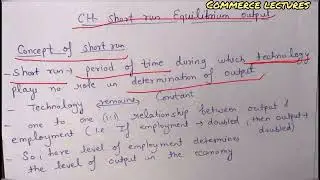 Commerce lectures
CH: Short run Equilibrium output
Concept of short run
- Short run → period of time during which technology
plays no role in determination of output
- Technology remains constant
- one to one (1:1) relationship between output &
employment (i.e If employment → doubled, then output →
doubled)
- So, here level of employment determines
the level of output in the economy